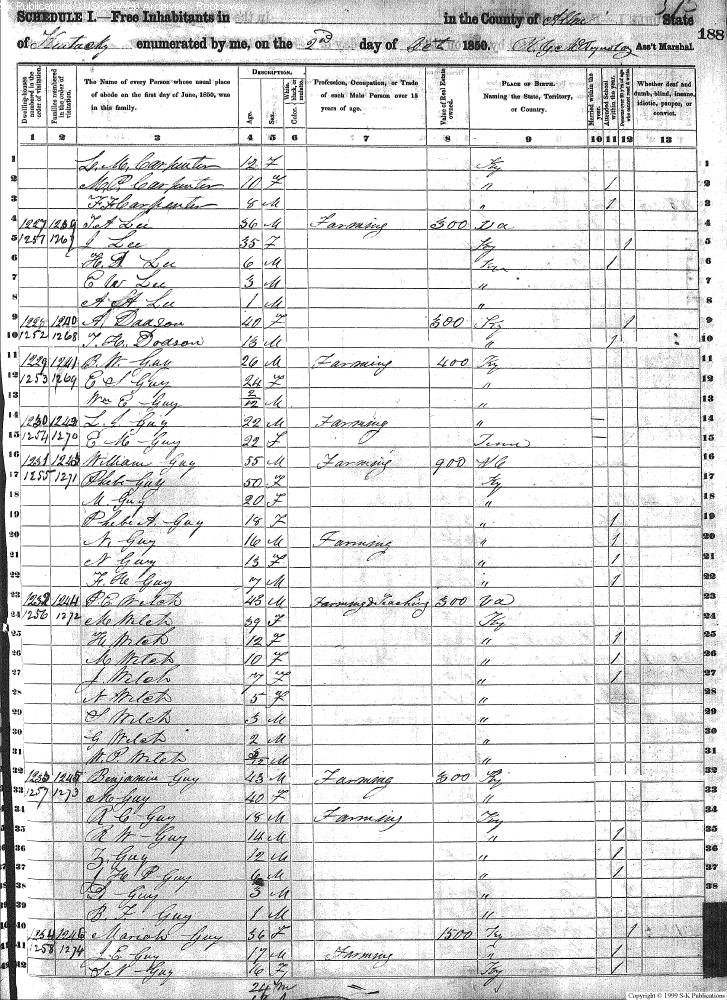 SCHEDULE I.—Free Inhabitants in in the County of Allen State
of Kentucky enumerated by me, on the 2nd day of Oct 1850. Ass't Marshal. 188
Dwelling-houses numbered in the order of visitation.
Families numbered in the order of visitation.
The Name of every Person whose usual place of abode on the first day of June, 1850, was in this family.
DESCRIPTION.
Age.
Sex.
Color. White, black, or mulatto.
Profession, Occupation, or Trade of each Male Person over 15 years of age.
Value of Real Estate owned.
PLACE OF BIRTH. Naming the State, Territory, or Country.
Married within the year.
Attended School within the year.
Whether deaf and dumb, blind, insane, idiotic, pauper, or convict.
1 2 3 4 5 6 7 8 9 10 11 12 13
1 L. M. Carpenter 12 F Ky
2 M. P. Carpenter 10 F " /
3 F. F. Carpenter 8 M " /
4 1227 1239 T A Lee 36 M Farming 300 Va
5 1251 1267 J Lee 35 F Ky /
6 H. D. Lee 6 M Ky /
7 E W Lee 3 M "
8 A H Lee 1 M "
9 1228 1240 A. Dodson 40 F 300 Ky /
10 1252 1268 T. H. Dodson 13 M " /
11 1229 1241 B. W. Guy 26 M Farming 400 Ky
12 1253 1269 E S Guy 24 F "
13 Wm E Guy 2/12 M "
14 1230 1242 L. J. Guy 22 M Farming "
15 1254 1270 E M Guy 22 F Tenn
16 1231 1243 William Guy 55 M Farming 900 NC
17 1255 1271 Phebe Guy 50 F Ky
18 M Guy 20 F "
19 Phebe A. Guy 18 F " /
20 N. Guy 16 M Farming " /
21 N Guy 13 F " /
22 F. H. Guy 7 M " /
23 1232 1244 P. E. Welch 43 M Farming & Teaching 300 Va
24 1256 1272 M Welch 39 F Ky
25 H Welch 12 F " /
26 M Welch 10 F " /
27 J Welch 7 F " /
28 N Welch 5 F "
29 S Welch 3 M "
30 G Welch 2 M "
31 W. P. Welch M "
32 1233 1245 Benjamin Guy 43 M Farming 300 Ky
33 1257 1273 M Guy 40 F "
34 R C Guy 18 M Farming Ky
35 R W Guy 14 M " /
36 Z. Guy 12 M " /
37 J H P Guy 6 M " /
38 D Guy 3 M "
B. F. Guy 1 M "
1234 1246 Mariah Guy 36 F 1500 Ky /
41 1258 1274 J. E Guy 17 M Farming " /
42 S N Guy 16 F Ky /
24 M
Copyright © 1999 S-K Publications